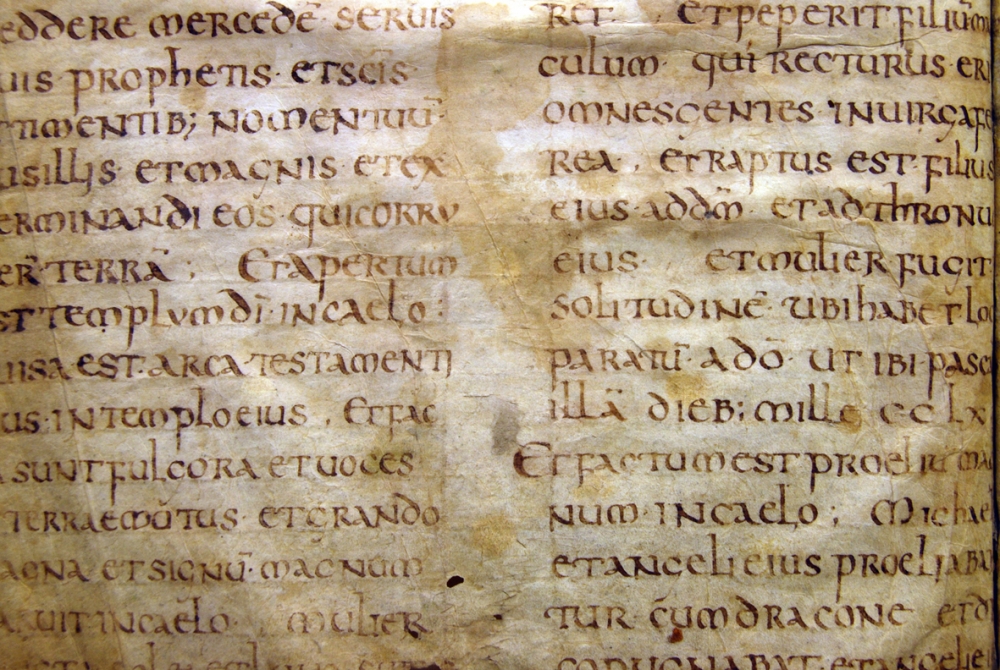 eddere mercedē servis
uis prophetis · et scīs ·
timentib; nomen tuū ·
usillis · et magnis · et ex
erminandi eos · qui corru
er̄ · terrā ; Et apertum
st templum dī · in caelo :
uisa est · arca testamenti
us · in templo eius , Et fac
a sunt fulcora et uoces
terraemōtus · et grando
agna et signū · magnum
aruit in caelo · mulier
ret · , et peperit filium
culum · qui recturus · eri
omnes gentes in uirga fe
rea · , et raptus est · filius
eius · ad dm̄ · et ad thronu
eius · et mulier fugit ·
solitudinē · ubi habet lo
paratū · a dō · ut ibi · pasc
illā dieb; mille cc lx
Et factum est proeliu mag
num · in caelo ; Michae
et angeli eius proeliaba
tur · cum dracone et d
co pugnabat et angeli e